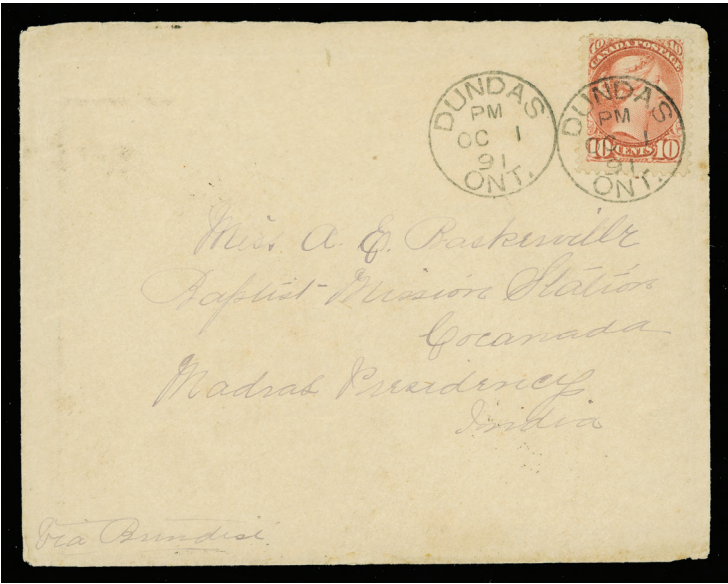 CANADA POSTAGE
10 CENTS 10
DUNDAS
PM
OC 1
91
ONT.
DUNDAS
PM
OC 1
91
ONT.
Miss A. E. Baskerville
Baptist Mission Station
Cocanada
Madras Presidency
India
Via Brindisi